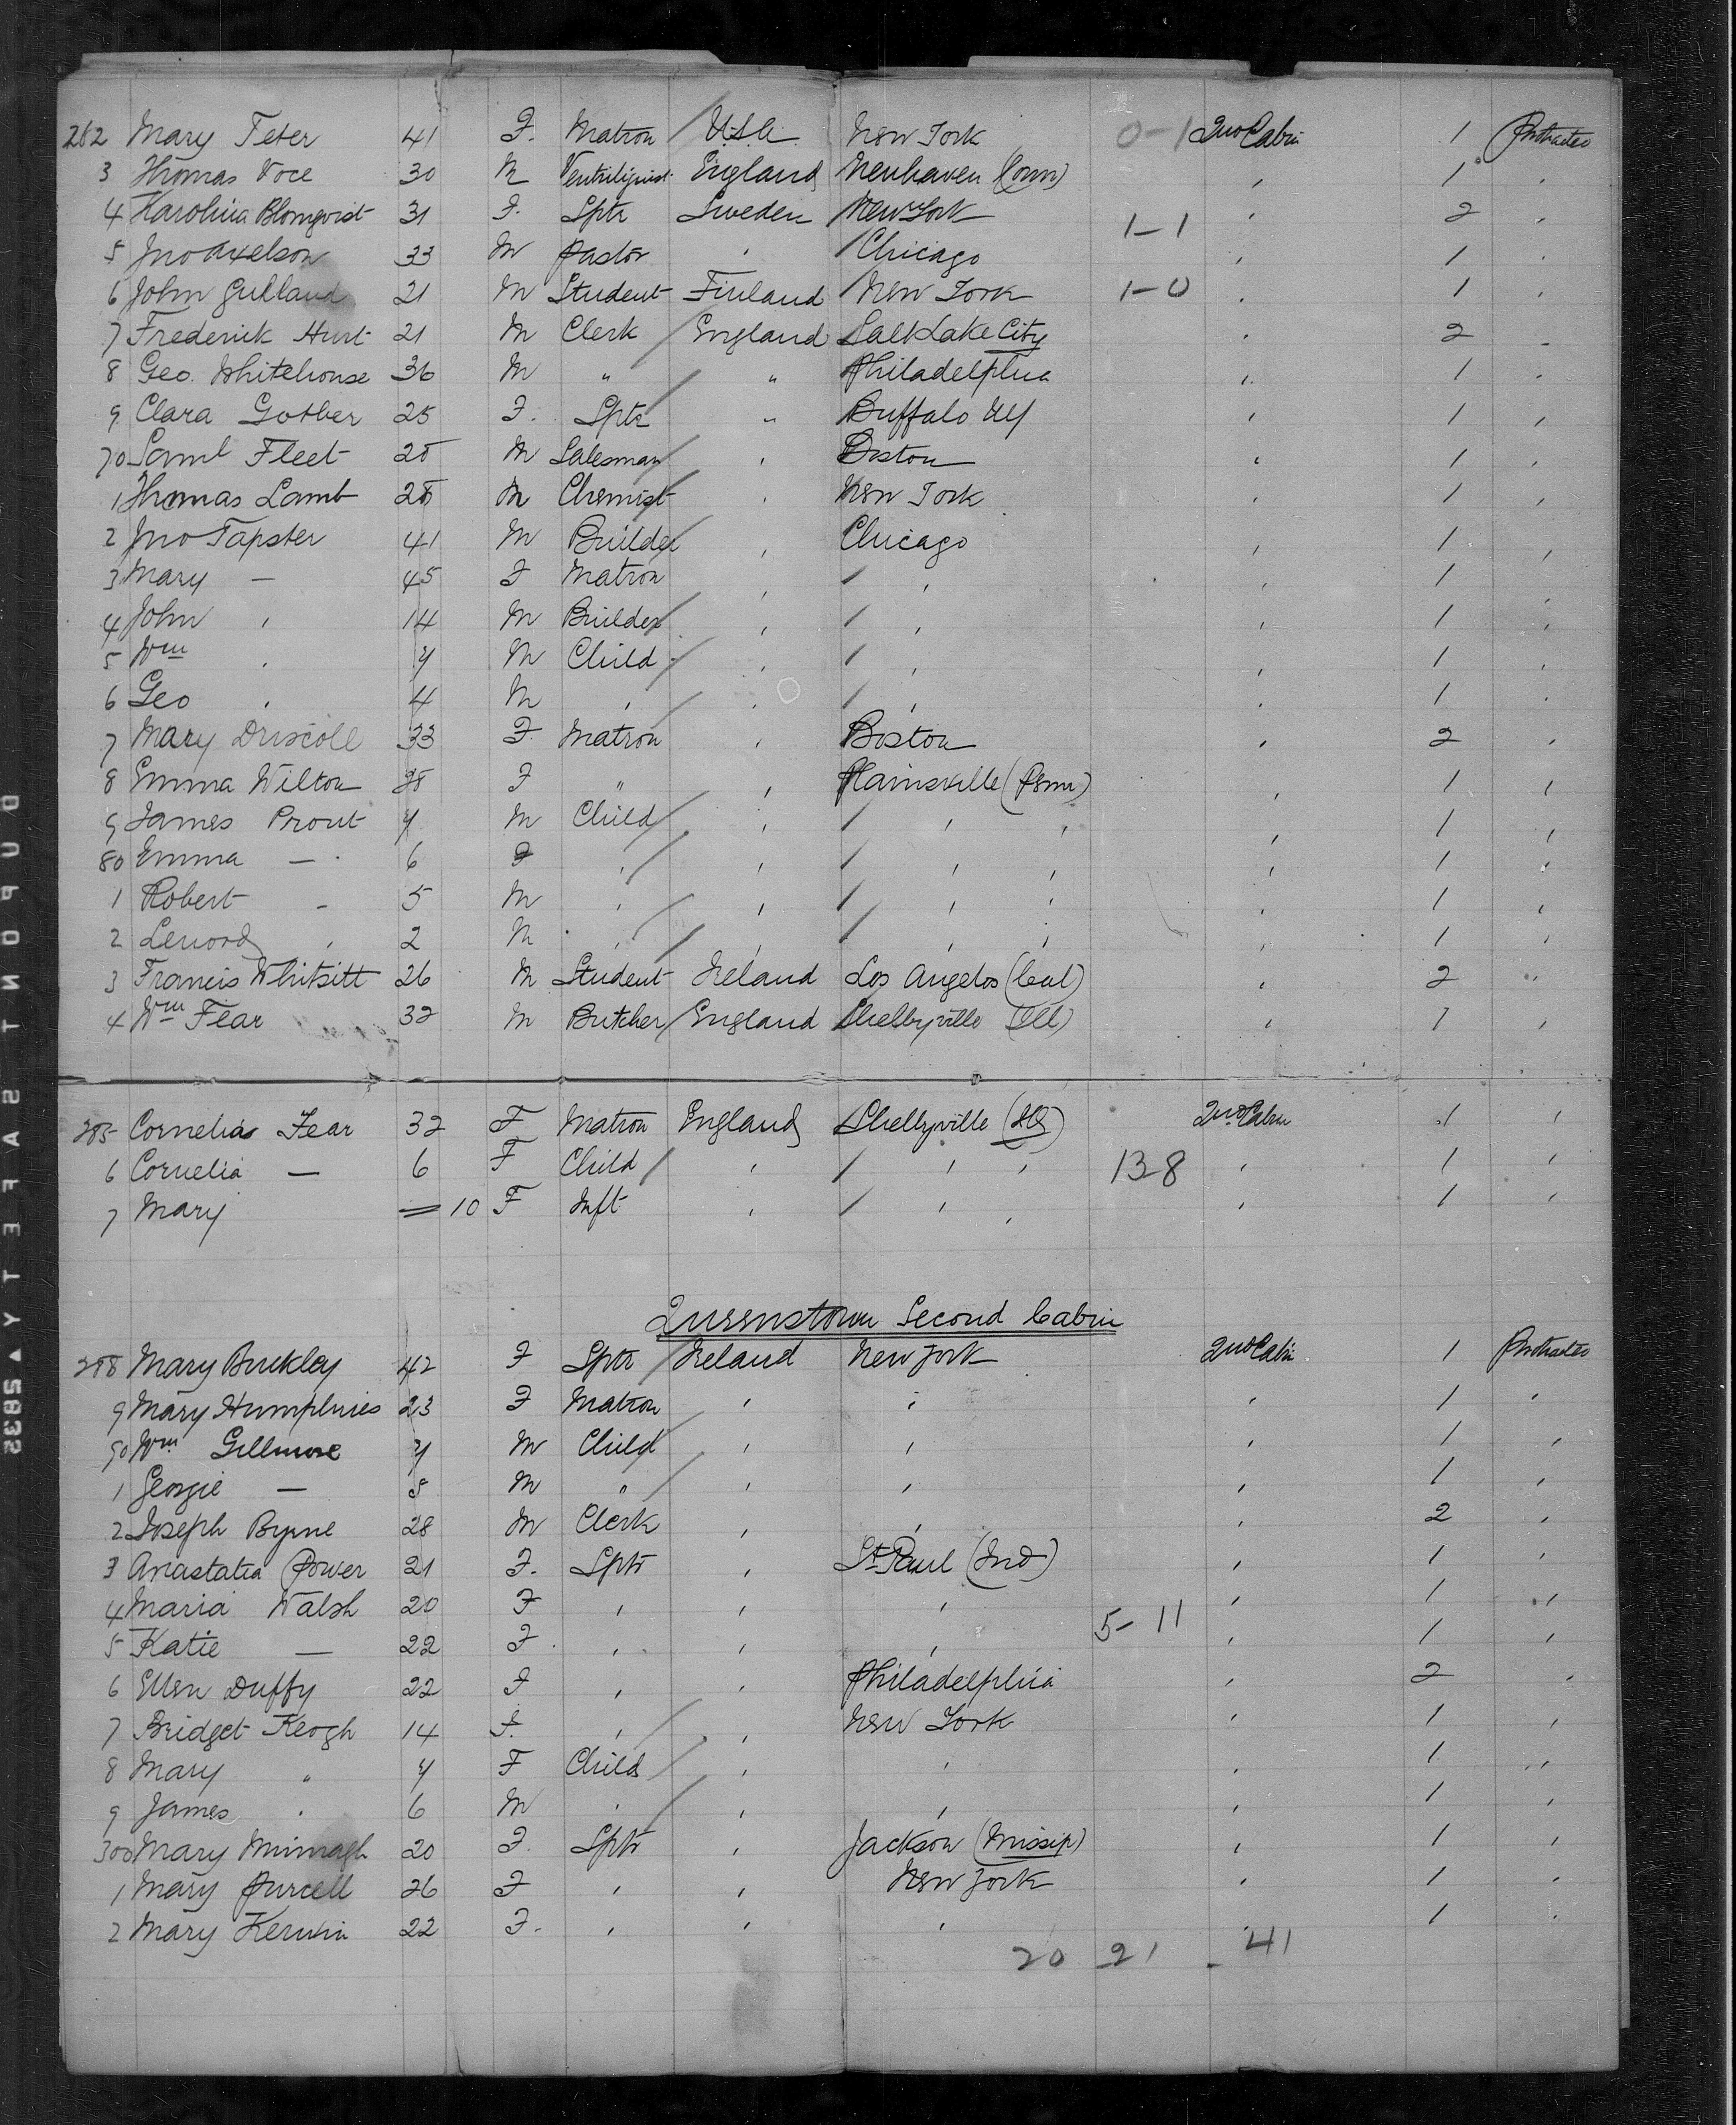 262 Mary Teter 41 F. Matron U.S.A. New York 0-1 2nd Cabin 1 Protracted
3 Thomas Voce 30 M Ventriliquist England Newhaven (Conn) , 1 ,
4 Karolina Blomqvist 31 F. Sptr Sweden New York 1-1 , 2 ,
5 Jno Axelson 33 M Pastor , Chicago , 1 ,
6 John Gulland 21 M Student Finland New York 1-0 , 1 ,
7 Frederick Hurt 21 M Clerk England Salt Lake City , 2 ,
8 Geo. Whitehouse 36 M " " Philadelphia , 1 ,
9 Clara Gotber 25 F. Sptr " Buffalo NY , 1 ,
70 Saml Fleet 25 M Salesman , Boston , 1 ,
1 Thomas Lamb 28 M Chemist , New York , 1 ,
2 Jno Tapster 41 M Builder , Chicago , 1 ,
3 Mary — 45 F Matron , , , 1 ,
4 John , 14 M Builder , , , 1 ,
5 Wm , 7 M Child , , , 1 ,
6 Geo , 4 M , , , , 1 ,
7 Mary Driscoll 33 F Matron , Boston , 2 ,
8 Emma Wilton 28 F " , Plainsville (Penn) , 1 ,
9 James Prout 7 M Child , , , , 1 ,
80 Emma — 6 F , , , , , 1 ,
1 Robert - 5 M , , , , , 1 ,
2 Lenord , 2 M , , , , , 1 ,
3 Francis Whitsitt 26 M Student Ireland Los Angelos (Cal) , 2 ,
4 Wm Fear 32 M Butcher England Shelbyville (Ill) , 1 ,
285 Cornelia Fear 32 F Matron England Shelbyville (Ill) 2nd Cabin 1 ,
6 Cornelia — 6 F Child , , , 13-8 , 1 ,
7 Mary = 10 F Inft , , , , 1 ,
Queenstown Second Cabin
288 Mary Buckley 42 F Sptr Ireland New York 2nd Cabin 1 Protracted
9 Mary Humphries 23 F Matron , , , 1 ,
90 Wm Gillmore 7 M Child , , , 1 ,
1 Georgie — 5 M " , , , 1 ,
2 Joseph Byrne 28 M Clerk , , , 2 ,
3 Anastatia Power 21 F. Sptr , St Paul (Ind) , 1 ,
4 Maria Walsh 20 F , , , , 1 ,
5 Katie — 22 F , , , 5-11 , 1 ,
6 Ellen Duffy 22 F , , Philadelphia , 2 ,
7 Bridget Keogh 14 F. , , New York , 1 ,
8 Mary " 7 F Child , , , 1 ,
9 James , 6 M , , , , 1 ,
300 Mary Mimnagh 20 F. Sptr , Jackson (Missip) , 1 ,
1 Mary Purcell 26 F , , New York , 1 ,
2 Mary Kerwin 22 F. , , , , 1 ,
20 21 - 41
DUPONT SAFETY ▲ 5832